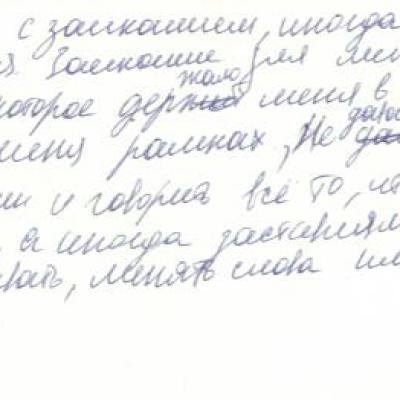 с заиканием иногда
Заикание для
жало
которое держ меня в
рамках, Не
и говорить всё то,
а иногда заставлял
вать, менять слова